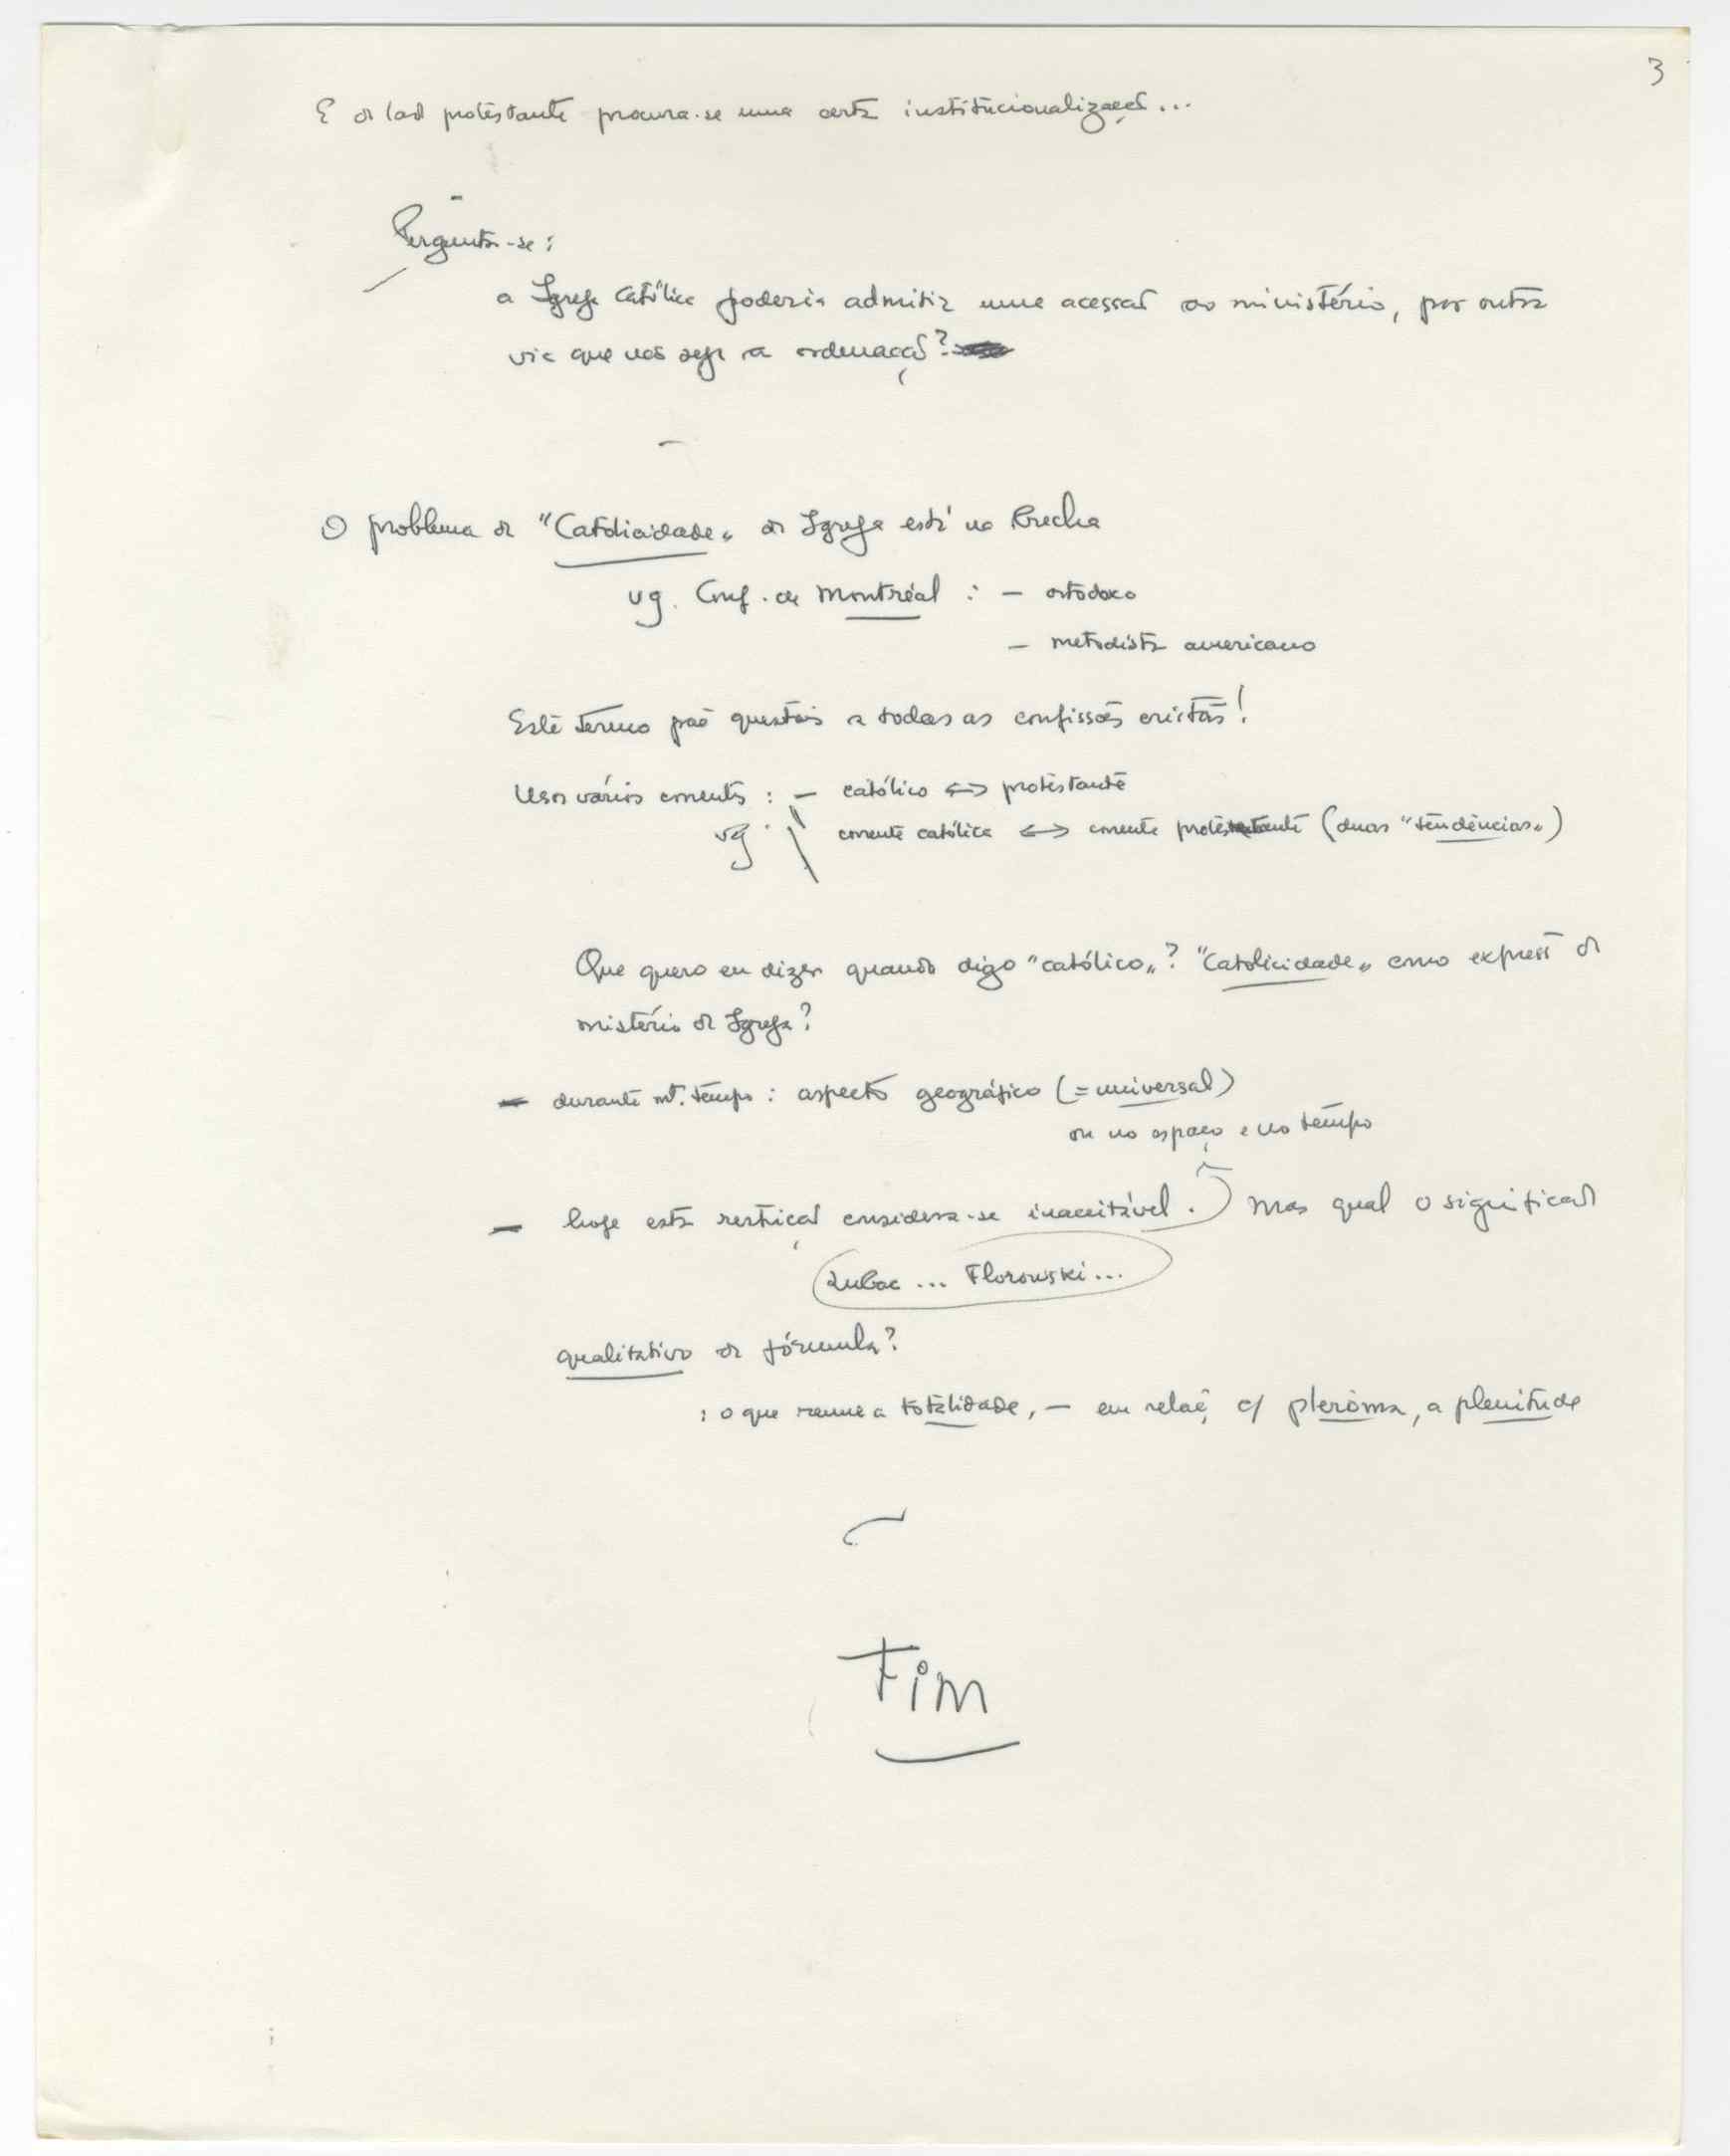 3
E do lado protestante procura-se uma certa institucionalização...
Pergunta-se:
a Igreja Católica poderia admitir uma acessão ao ministério, por outra
via que não seja a ordenação?
O problema da "Catolicidade" da Igreja está na Brecha
vg. Conf. de Montréal : - ortodoxo
- metodista americano
Este termo põe questões a todas as confissões cristãs!
Usos vários correntes : - católico <-> protestante
vg. corrente católica <-> corrente protestante (duas "tendências")
Que quero eu dizer quando digo "católico"? "Catolicidade" como expressão do
mistério da Igreja?
- durante mt. tempo : aspecto geográfico (= universal)
ou no espaço e no tempo
- hoje esta restrição considera-se inaceitável. Mas qual o significado
Lubac ... Florowski ...
qualitativo da fórmula?
: o que reune a totalidade, - em relação c/ pleroma, a plenitude
Fim